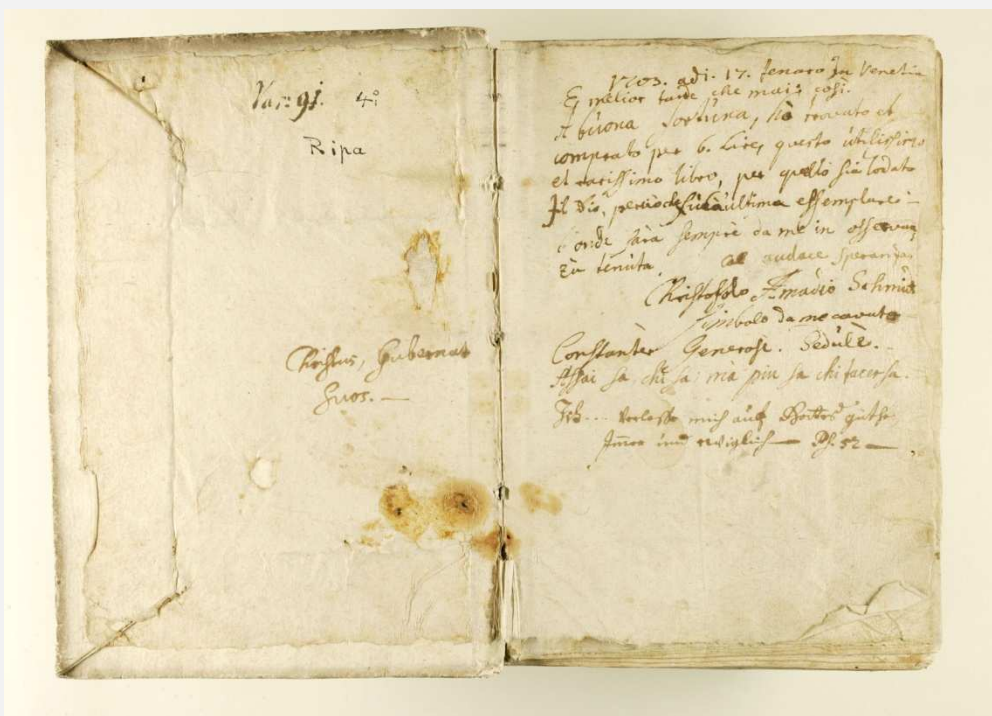 Var: 91. 4°
Ripa
Christus, Gubernat
Suos. —
1703. adi. 17. Genaro In Venetia
È melior tarde che mai: così.
A buona fortuna, hò trovato et
comprato per 6. Lire, questo utilissimo
et rarissimo libro, per quello sia lodato
Il Dio, ultima essemplare
onde sarà sempre da me in
tenuta. audace speranza
Christofolo Amadio Schmidt
Simbolo da me cavato
Constanter Generose. Sedulè.
Assai sa chi sa: mà piu sa chi tacer sa.
Ich verlasse mich auf Gottes güthe
Immer und ewiglich — Ps. 52 —